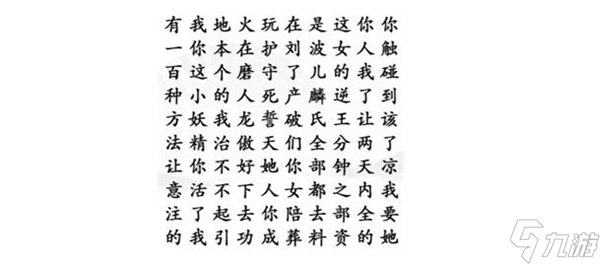 有我地火玩在是这你你
一你本在护刘波女人触
百这个磨守了儿的我碰
种小的人死产麟逆了到
方妖我龙誓破氏王让该
法精治傲天们全分两了
让你不好她你部钟天凉
意活不下人女都之内我
注了起去你陪去部全要
的我引功成葬料资的她
九游